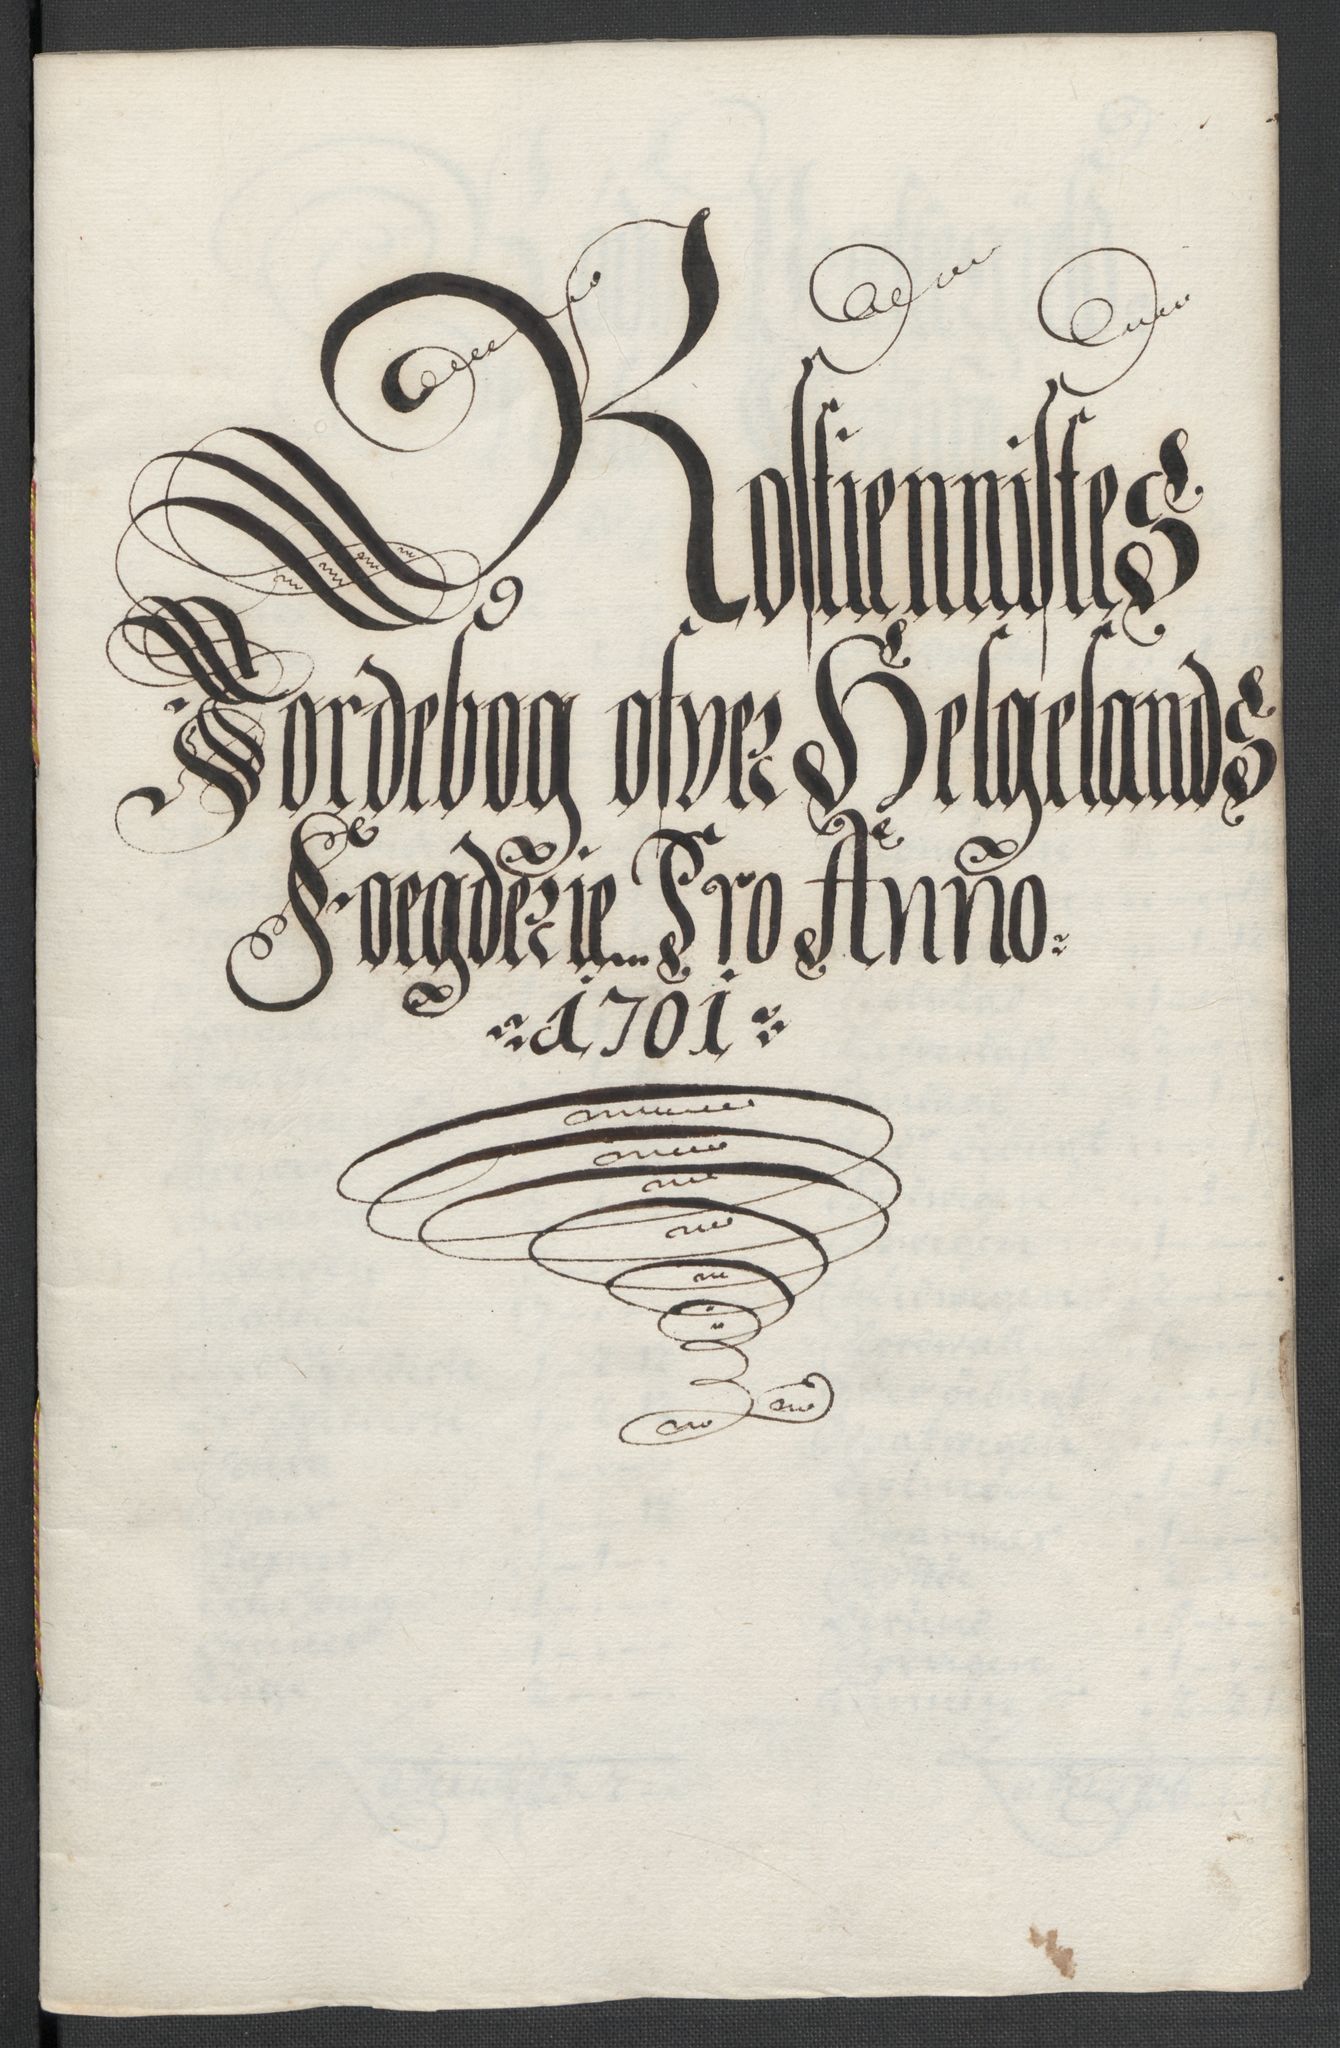 Rostiennistes
Jordebog ofver Helgelands
Foegderie Pro Anno
1701